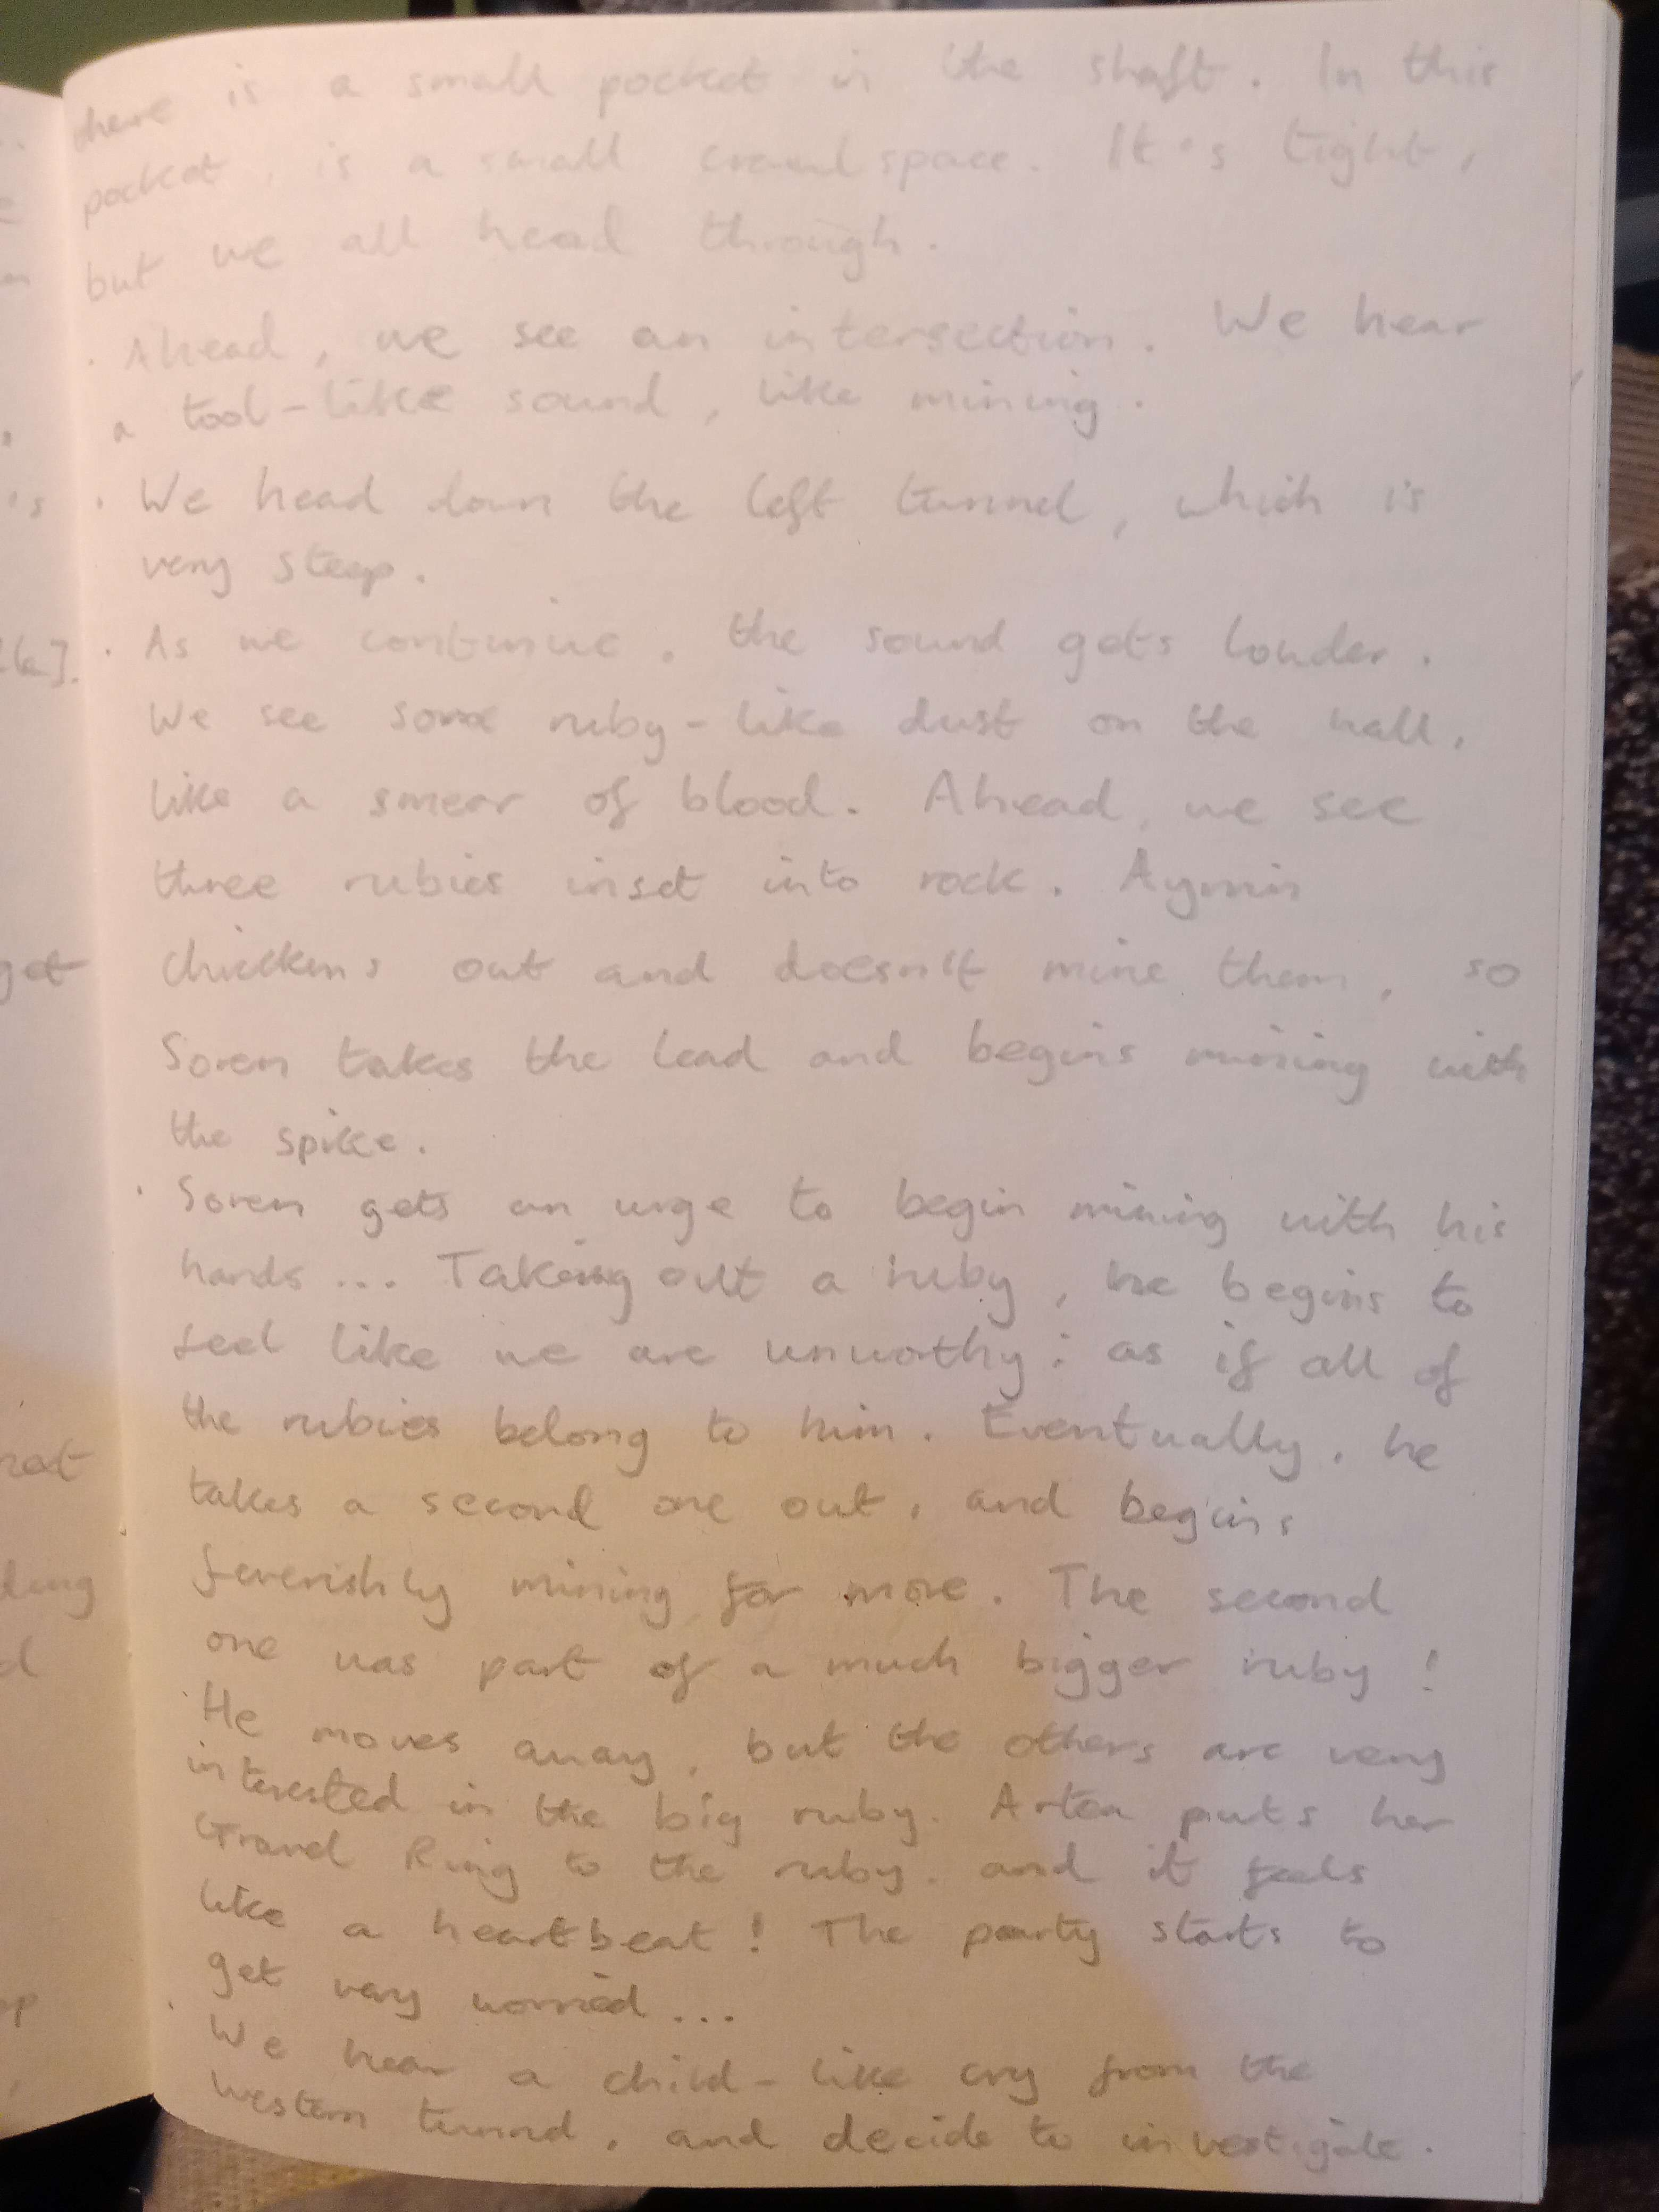 there is a small pocket in the shaft. In this
pocket, is a small crawlspace. It's tight,
but we all head through.
· Ahead, we see an intersection. We hear
a tool-like sound, like mining.
· We head down the left tunnel, which is
very steep.
· As we continue, the sound gets louder.
We see some ruby-like dust on the wall,
like a smear of blood. Ahead, we see
three rubies inset into rock. Aymin
chickens out and doesn't mine them, so
Soren takes the lead and begins mining with
the spike.
· Soren gets an urge to begin mining with his
hands... Taking out a ruby, he begins to
feel like we are unworthy; as if all of
the rubies belong to him. Eventually, he
takes a second one out, and begins
feverishly mining for more. The second
one was part of a much bigger ruby!
· He moves away, but the others are very
interested in the big ruby. Arten puts her
Gravel Ring to the ruby, and it feels
like a heartbeat! The party starts to
get very worried...
· We hear a child-like cry from the
western tunnel, and decide to investigate.